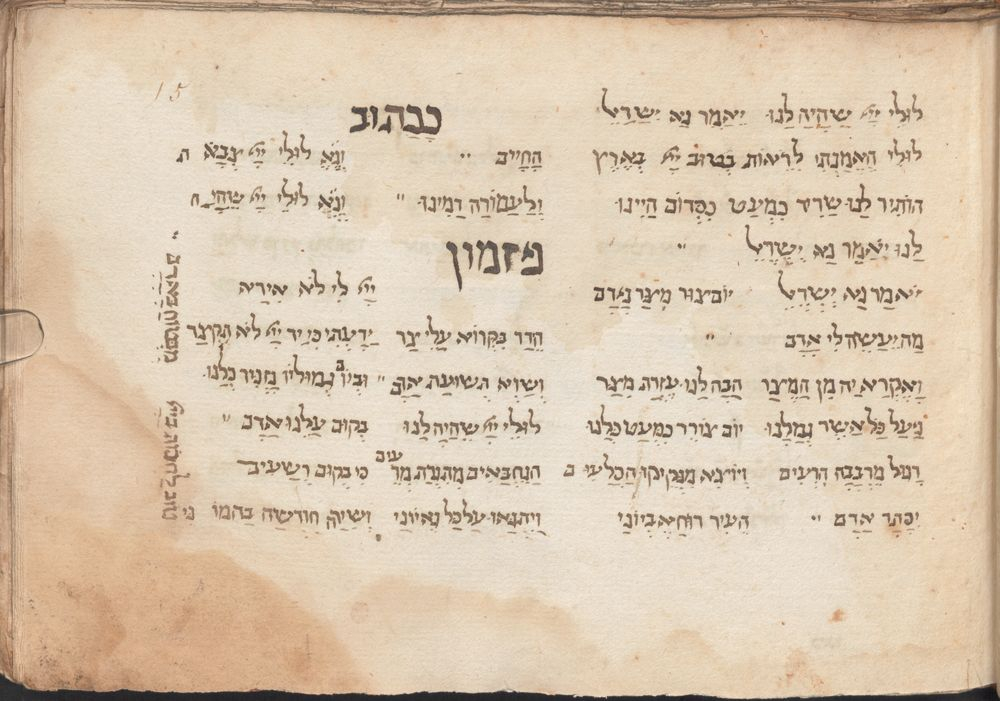 15
לולי ייי שהיה לנו יאמר נא ישראל ככתוב
לולי האמנתי לראות בטוב ייי בארץ החיים ״ ונא לולי ייי צבא ת
הותיר לנו שריד כמעט כסדום היינו ולעמורה דמינו ״ ונא לולי ייי שהיה
לנו יאמר נא ישראל ״ פזמון
יאמר נא ישראל יום צור מצר נאדם ייי לי לא אירא
מה יעשה לי אדם ״ הדר בקרוא עלי צר ידעתי כי יד ייי לא תקצר
ואקרא יה מן המצר הבה לנו עזרת מצר ושוא תשועת אדם ״ וביום גמוליו נזכיר כלנו
על כל אשר גמלנו יום צורר כמעט כלנו לולי ייי שהיה לנו בקום עלינו אדם ״
מרבבה הרעים הנחבאים כי בקום רשעים
יסתר אדם ״ העיר רוח אביוני על כל גאיוני חודשה בהמו